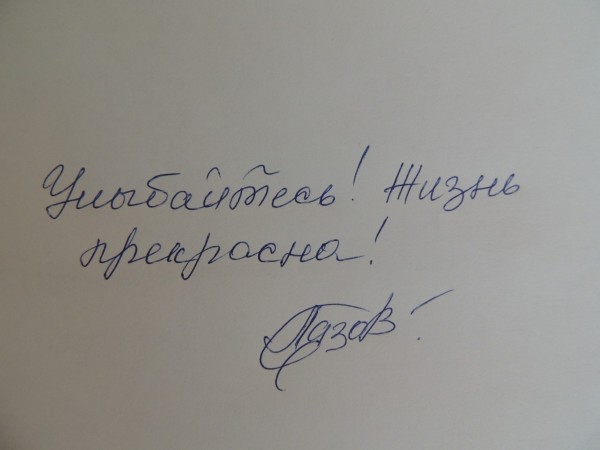 Улыбайтесь! Жизнь
прекрасна!